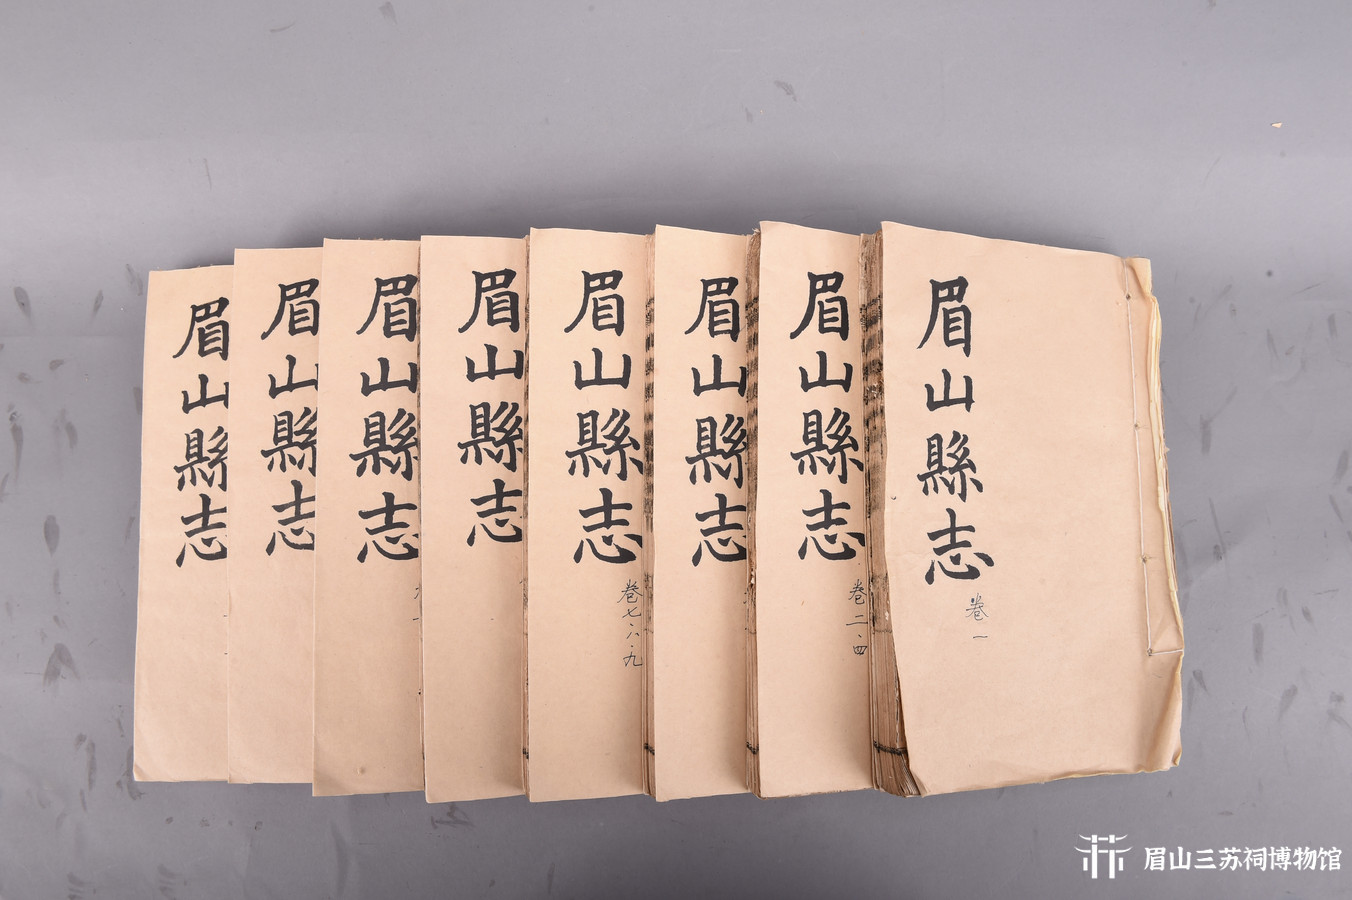 眉山縣志
卷一
眉山縣志
卷二·四
眉山縣志
眉山縣志
卷七·八·九
眉山縣志
眉山縣志
眉山縣志
眉山縣志
眉山三苏祠博物馆